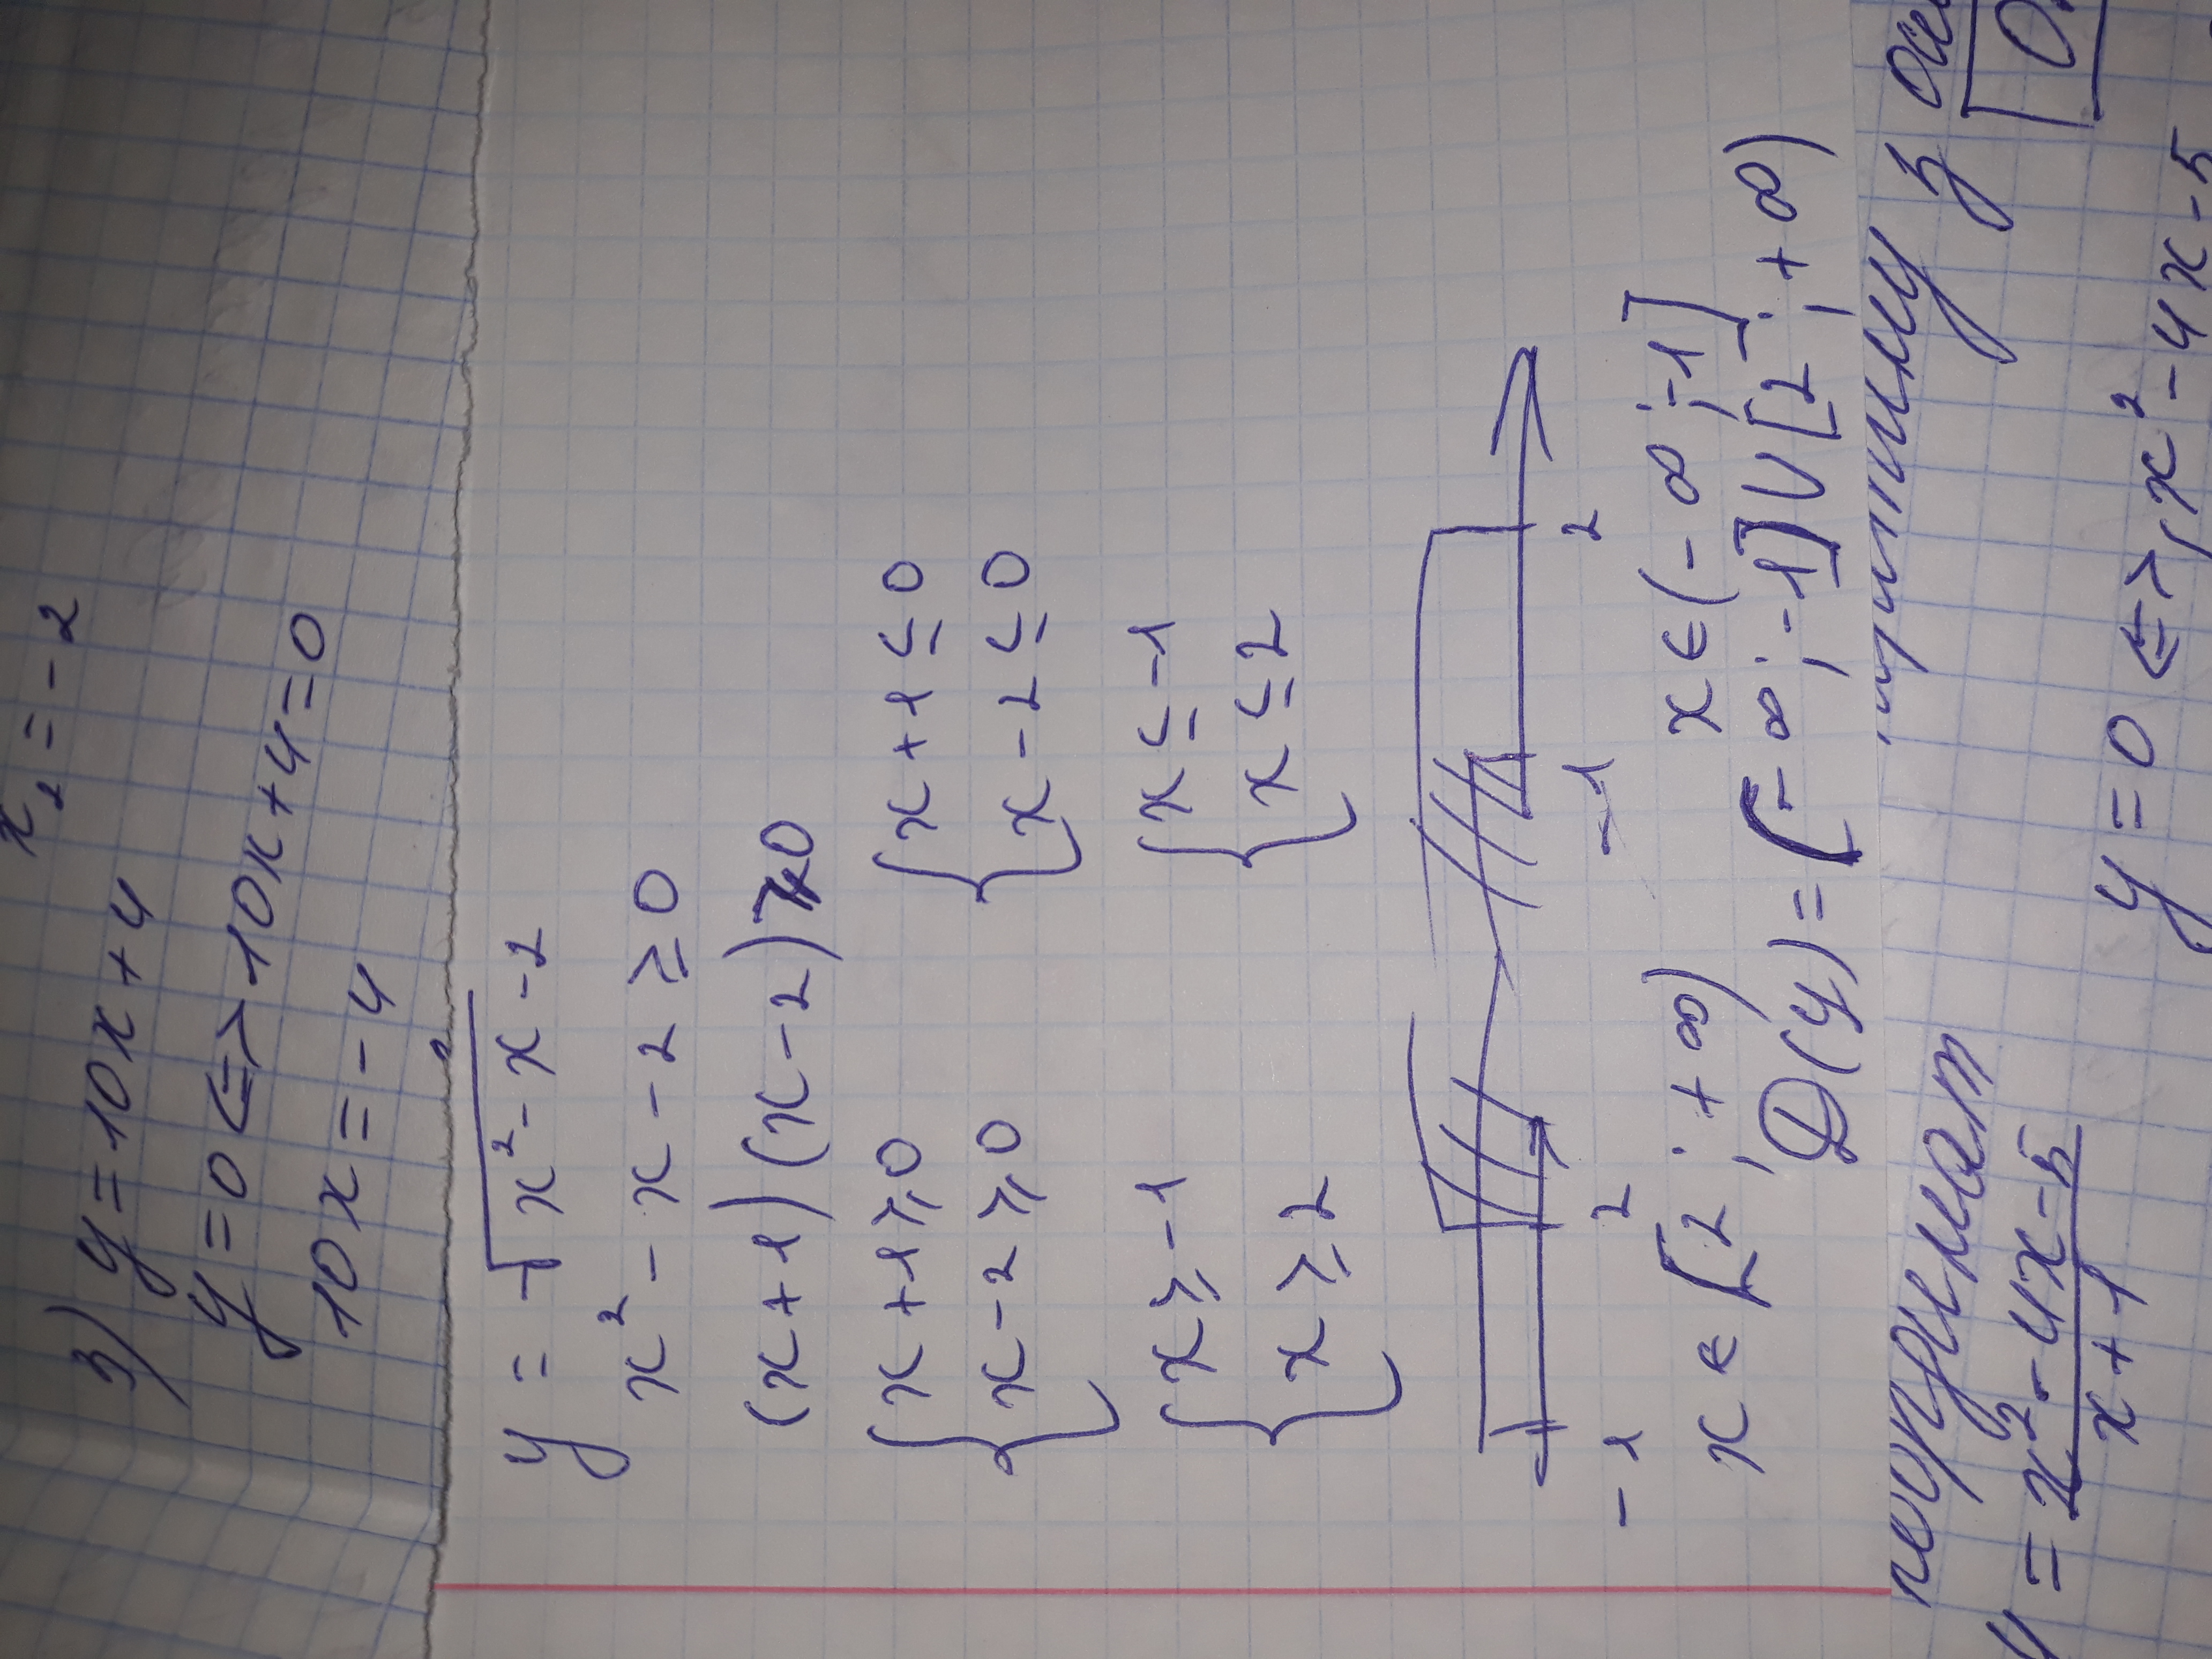 x₂ = -2
3) y = 10x + 4
y = 0 <=> 10x + 4 = 0
10x = -4
y = √(x² - x - 2)
x² - x - 2 ≥ 0
(x + 1)(x - 2) ≥ 0
{ x + 1 ≥ 0 { x + 1 ≤ 0
x - 2 ≥ 0 x - 2 ≤ 0
{ x ≥ -1 { x ≤ -1
x ≥ 2 x ≤ 2
-1 2 -1 2
x ∈ [2 ; +∞) x ∈ (-∞ ; -1]
D(y) = (-∞ ; -1] ∪ [2 ; +∞)
y = (x² - 4x - 5)/(x + 1)
y = 0 <=> x² - 4x - 5